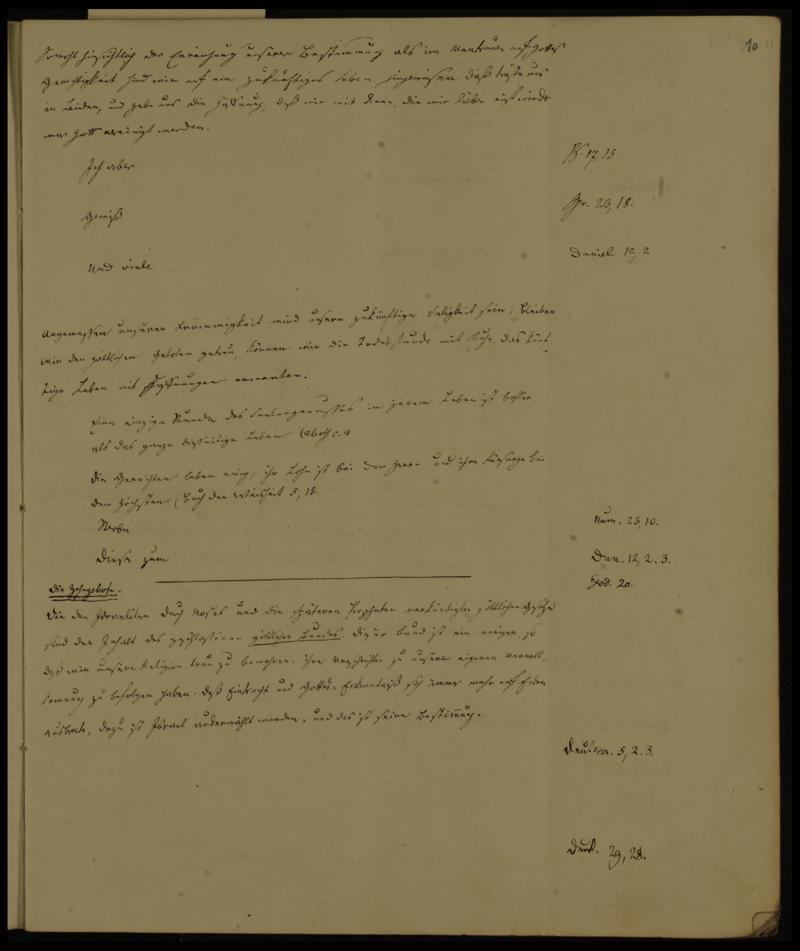 10
Sowohl hinsichtlich der Erreichung unserer Bestimmung als im Vertrauen auf Gottes
Gerechtigkeit sind wir auf ein zukünftiges Leben hingewiesen. Dieß tröste uns
in Leiden, und gebe uns die Hoffnung, daß wir mit denen, die wir lieben einst wieder
vor Gott vereinigt werden.
Ich aber
Ps. 17, 15
Gewiß
Spr. 23, 18.
Und viele
Daniel 12, 2
Angemessen unserer Frömmigkeit wird unsere zukünftige Seligkeit sein; bleiben
wir den göttlichen Geboten getreu, können wir die Todesstunde mit Ruhe, das künf
tige Leben mit Hoffnungen erwarten.
Eine einzige Stunde des Seelengenusses in jenem Leben ist besser
als das ganze diesseitige Leben (Aboth c. 4
Die Gerechten leben ewig, ihr Lohn ist bei dem Herrn und ihre Fürsorge bei
dem Höchsten (Buch der Weisheit 5, 15.
Sterbe
Num. 23, 10.
Diese zum
Dan. 12, 2. 3.
Die Zehngebote.
Exod. 20.
Die den Israeliten durch Moses und die späteren Propheten verkündigten göttlichen Gesetze
sind der Inhalt des geschlossenen göttlichen Bundes. Dieser Bund ist ein ewiger, so
daß wir unsere Religion treu zu bewahren, ihre Vorschriften zu unserer eigenen Vervoll
kommnung zu befolgen haben. Daß Eintracht und Gottes-Erkenntniß sich immer mehr auf Erden
ausbreite, dazu ist Israel auserwählt worden, und das ist seine Bestimmung.
Deuteron. 5, 2. 3.
Deut. 29, 28.